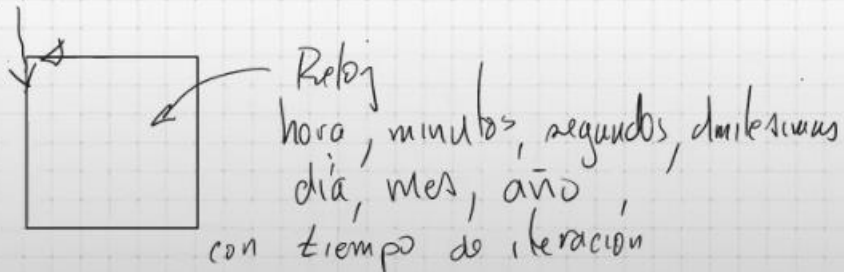 Reloj
hora, minutos, segundos, dmilesimas
día, mes, año,
con tiempo de iteración